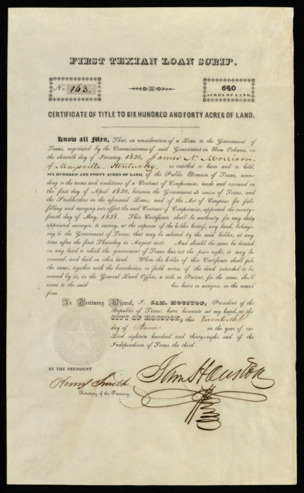 FIRST TEXIAN LOAN SCRIP.
No. 163.
640
ACRES OF LAND.
CERTIFICATE OF TITLE TO SIX HUNDRED AND FORTY ACRES OF LAND.
Know all Men, That, in consideration of a Loan to the Government of
Texas, negotiated by the Commissioners of said Government in New Orleans, on
the eleventh day of January, 1836, James N. Morrison
of Maysville Kentucky is entitled to have and to hold
SIX HUNDRED AND FORTY ACRES OF LAND, of the Public Domain of Texas, accor-
ding to the terms and conditions of a Contract of Compromise, made and executed on
the first day of April, 1836, between the Government of Texas, and
the Stockholders in the aforesaid Loan; and of the Act of Congress for ful-
filling and carrying into effect the said Contract of Compromise, approved the twenty-
fourth day of May, 1838. This Certificate shall be authority for any duly
appointed surveyor, to survey, at the expense of the holder hereof, any land, belong-
ing to the Government of Texas, that may be selected by the said holder, at any
time after the first Thursday in August next. And should the same be located
on any land to which the government of Texas has not the fair right, it may be
removed, and laid on other land. When the holder of this Certificate shall file
the same, together with the boundaries, or field notes, of the land intended to be
covered by it, in the General Land Office, a title or Patent, for the same, shall
issue to the said his heirs or assigns, in the usual
form.
In Testimony Whereof, I, SAM. HOUSTON, President of the
Republic of Texas, have hereunto set my hand, at the
CITY OF HOUSTON, this
day of June in the year of our
Lord eighteen hundred and thirty-eight, and of the
Independence of Texas the third.
BY THE PRESIDENT
Sam Houston
Henry Smith
Secretary of the Treasury.